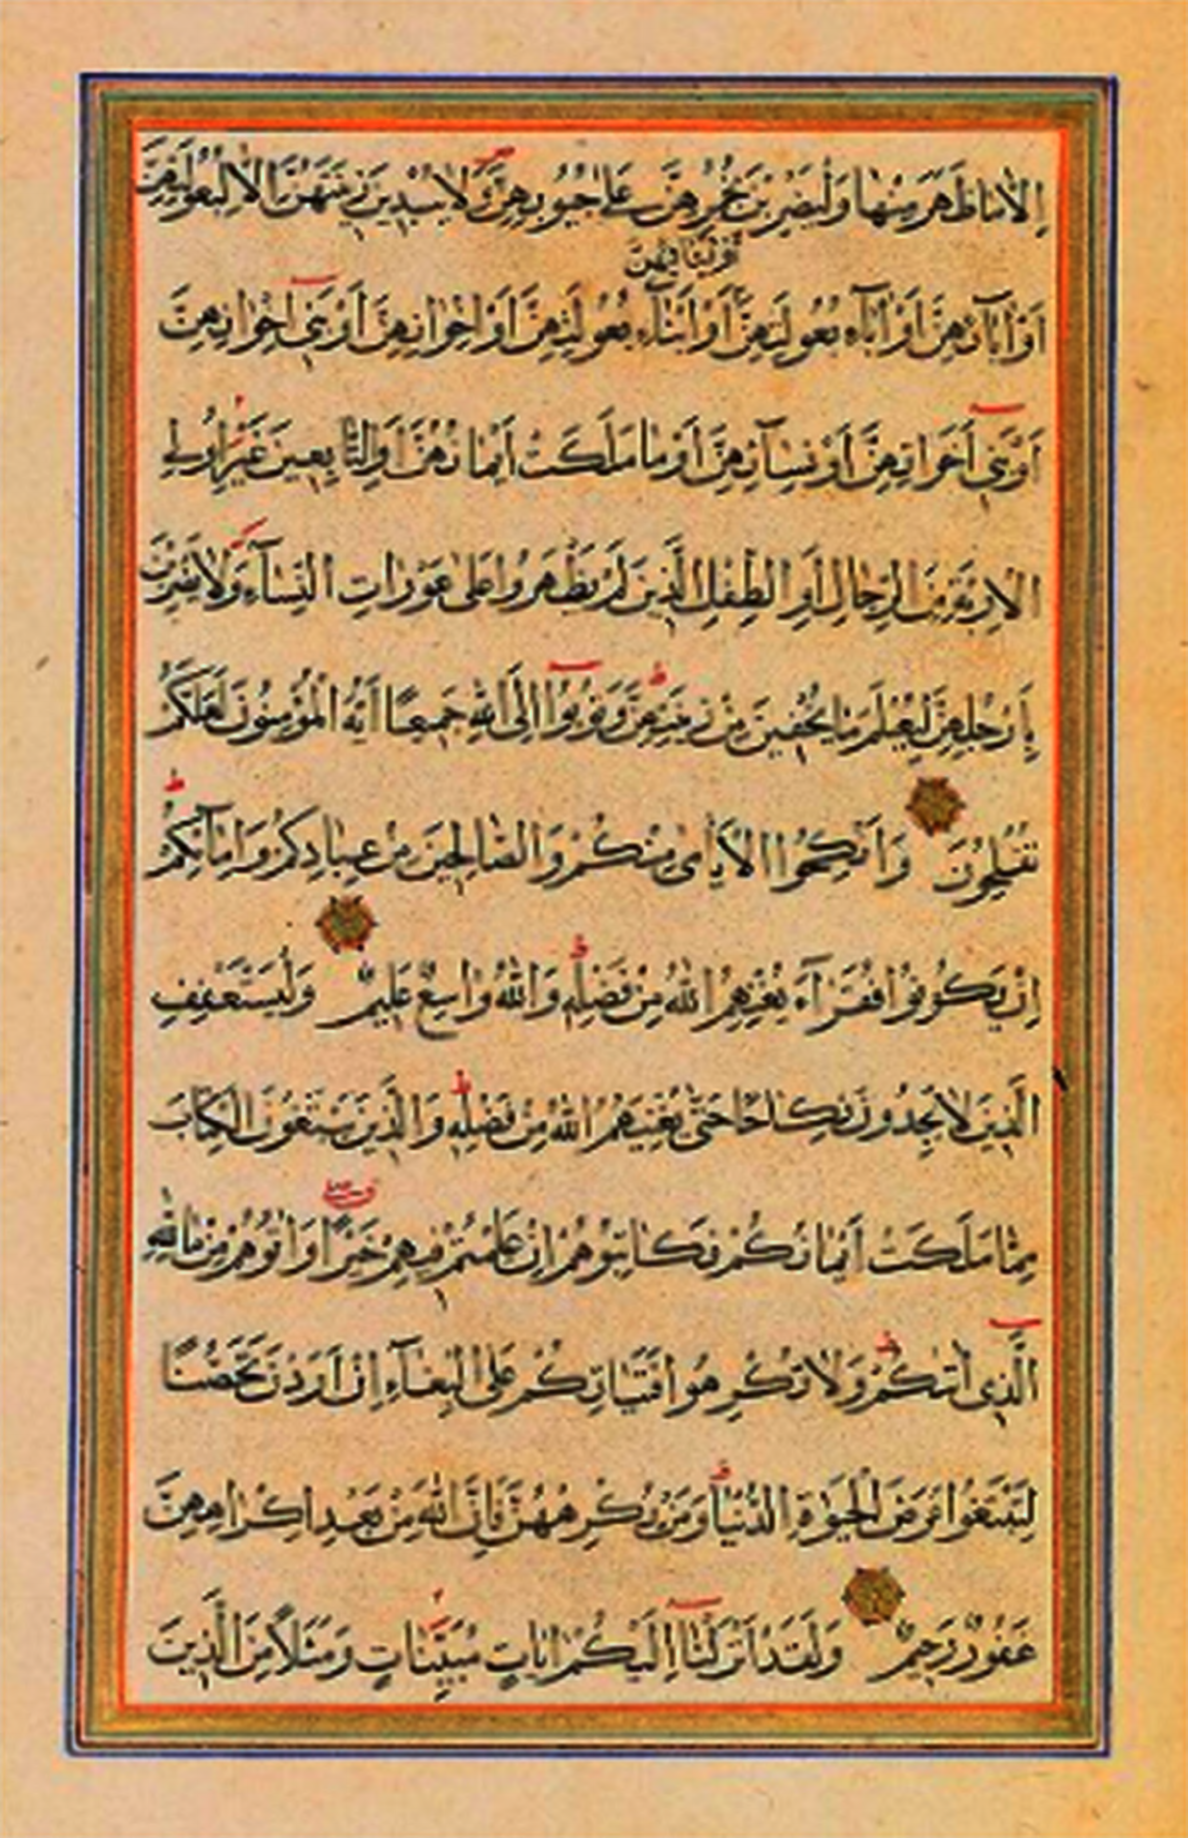 إِلَّا مَا ظَهَرَ مِنْهَا وَلْيَضْرِبْنَ بِخُمُرِهِنَّ عَلَى جُيُوبِهِنَّ وَلَا يُبْدِينَ زِينَتَهُنَّ إِلَّا لِبُعُولَتِهِنَّ
أَوْ أَبْنَآئِهِنَّ
أَوْ اٰبَآئِهِنَّ أَوْ اٰبَآءِ بُعُولَتِهِنَّ أَوْ أَبْنَآءِ بُعُولَتِهِنَّ أَوْ إِخْوَانِهِنَّ أَوْ بَنِي إِخْوَانِهِنَّ
أَوْ بَنِي أَخَوَاتِهِنَّ أَوْ نِسَآئِهِنَّ أَوْ مَا مَلَكَتْ أَيْمَانُهُنَّ أَوِ التَّابِعِينَ غَيْرِ أُولِي
الْإِرْبَةِ مِنَ الرِّجَالِ أَوِ الطِّفْلِ الَّذِينَ لَمْ يَظْهَرُوا عَلَى عَوْرَاتِ النِّسَآءِ وَلَا يَضْرِبْنَ
بِأَرْجُلِهِنَّ لِيُعْلَمَ مَا يُخْفِينَ مِنْ زِينَتِهِنَّ وَتُوبُوا إِلَى اللّٰهِ جَمِيعًا أَيُّهَ الْمُؤْمِنُونَ لَعَلَّكُمْ
تُفْلِحُونَ وَأَنْكِحُوا الْأَيَامَى مِنْكُمْ وَالصَّالِحِينَ مِنْ عِبَادِكُمْ وَإِمَآئِكُمْ
إِنْ يَكُونُوا فُقَرَآءَ يُغْنِهِمُ اللّٰهُ مِنْ فَضْلِهِ وَاللّٰهُ وَاسِعٌ عَلِيمٌ وَلْيَسْتَعْفِفِ
الَّذِينَ لَا يَجِدُونَ نِكَاحًا حَتَّى يُغْنِيَهُمُ اللّٰهُ مِنْ فَضْلِهِ وَالَّذِينَ يَبْتَغُونَ الْكِتَابَ
مِمَّا مَلَكَتْ أَيْمَانُكُمْ فَكَاتِبُوهُمْ إِنْ عَلِمْتُمْ فِيهِمْ خَيْرًا وَاٰتُوهُمْ مِنْ مَالِ اللّٰهِ
الَّذِي اٰتٰىكُمْ وَلَا تُكْرِهُوا فَتَيَاتِكُمْ عَلَى الْبِغَآءِ إِنْ أَرَدْنَ تَحَصُّنًا
لِتَبْتَغُوا عَرَضَ الْحَيٰوةِ الدُّنْيَا وَمَنْ يُكْرِهْهُنَّ فَإِنَّ اللّٰهَ مِنْ بَعْدِ إِكْرَاهِهِنَّ
غَفُورٌ رَحِيمٌ وَلَقَدْ أَنْزَلْنَا إِلَيْكُمْ اٰيَاتٍ مُبَيِّنَاتٍ وَمَثَلًا مِنَ الَّذِينَ